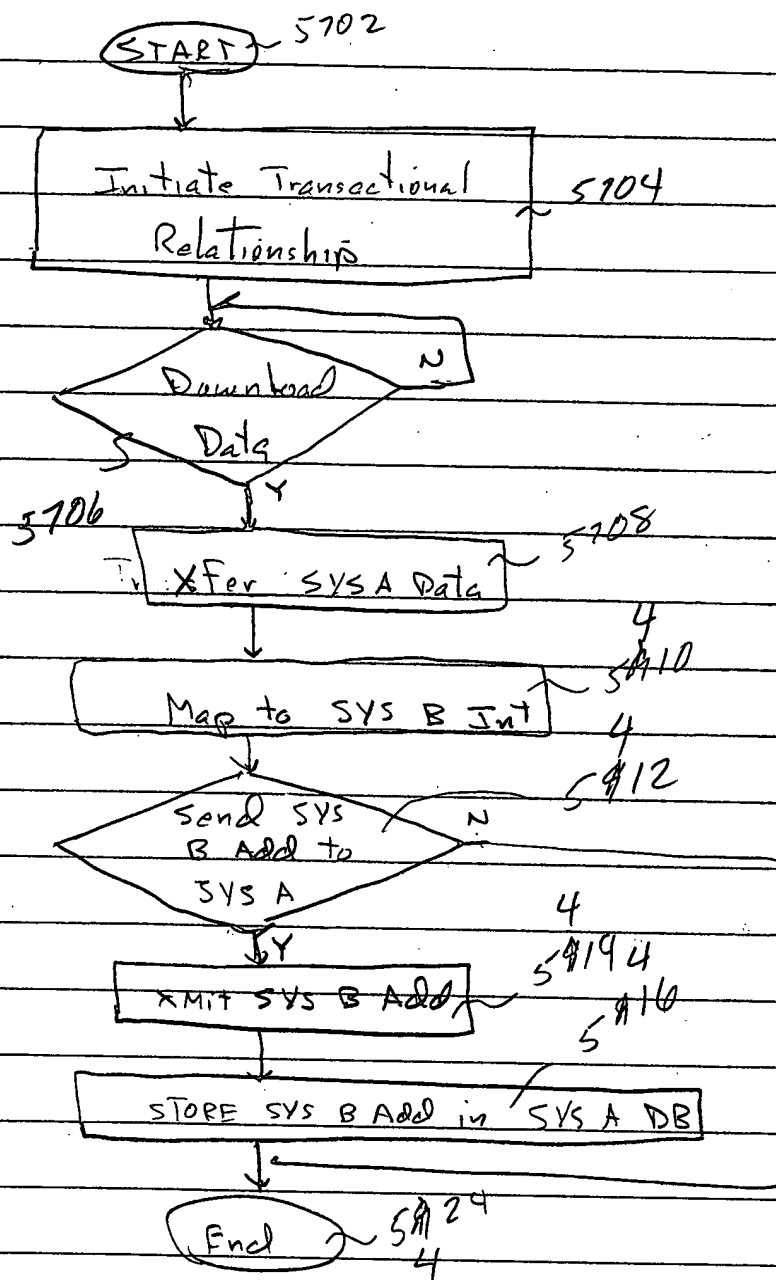 START 5702
Initiate Transactional 5704
Relationship
N
Download
Data
Y
5706
5708
Xfer SYS A Data
4
510
Map to SYS B Int
4
512
Send SYS
B Add to
SYS A
N
Y
4
XMit SYS B Add
4
516
STORE SYS B Add in SYS A DB
End
4